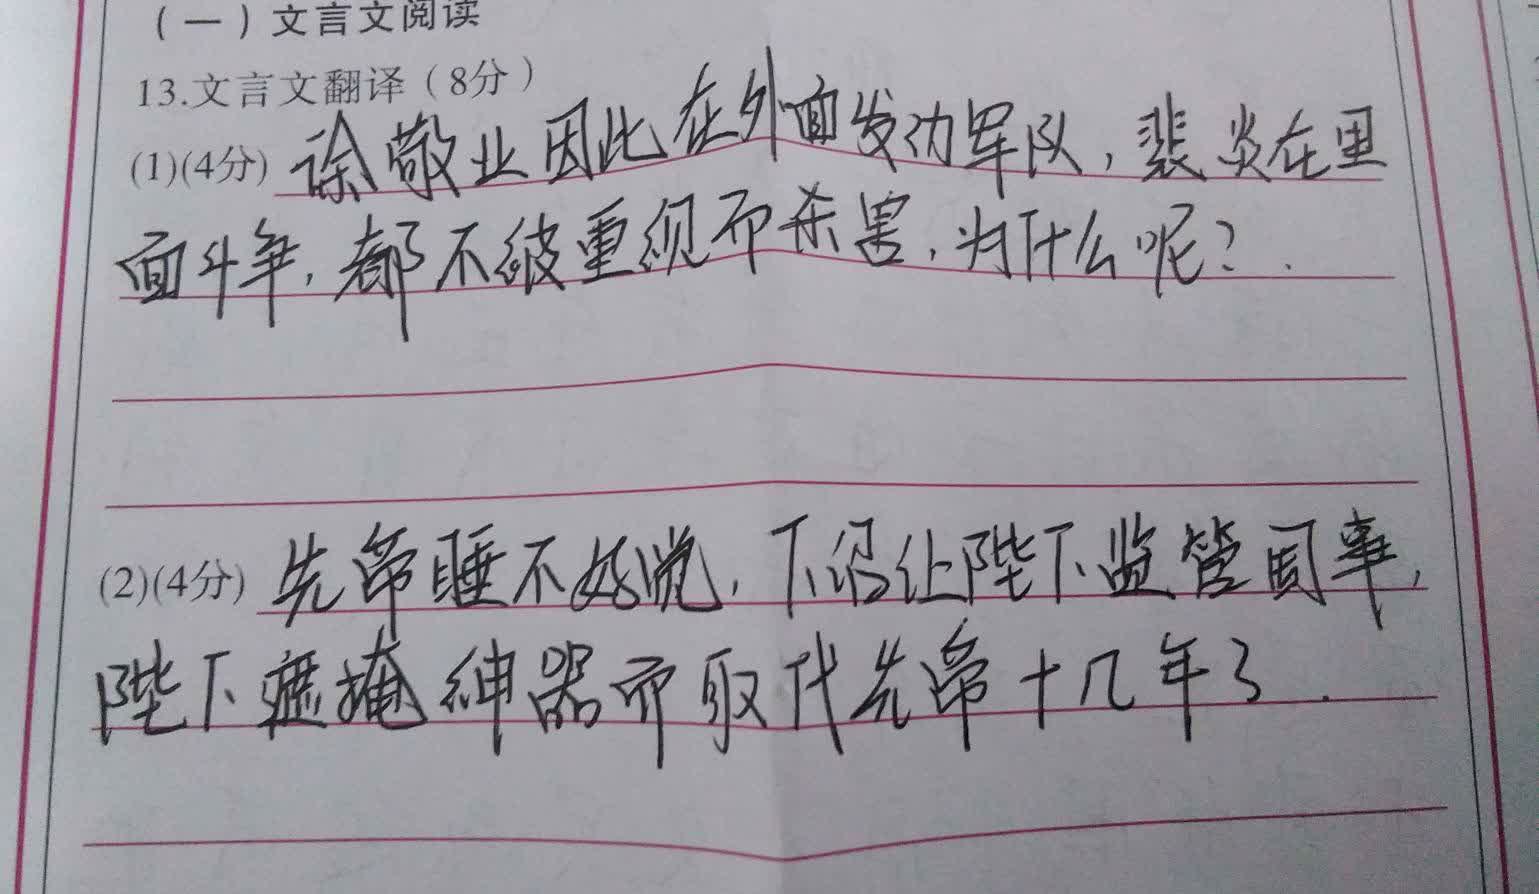 （一）文言文阅读
13.文言文翻译（8分）
(1)(4分) 徐敬业因此在外面发动军队，裴炎在里
面斗争，都不被重视而杀害，为什么呢？
(2)(4分) 先帝睡不好觉，下诏让陛下监管国事，
陛下遮掩神器而取代先帝十几年了.